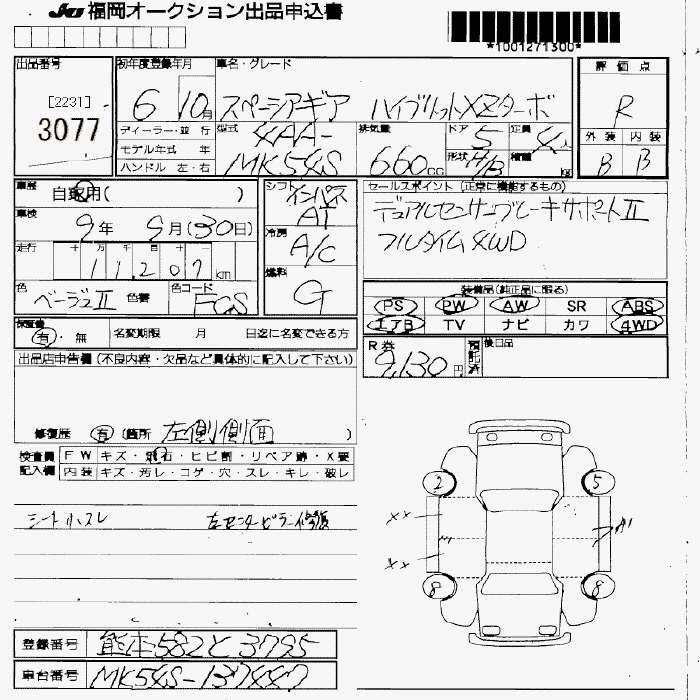 JU 福岡オークション出品申込書
*1001271300*
出品番号
[2231]
3077
初年度登録年月
6 10月
車名・グレード
スペーシアギア ハイブリットXZターボ
評価点
R
外装 内装
B B
ディーラー・並 行
モデル年式 年
ハンドル 左・右
型式
4AA-
MK54S
排気量
660cc
ドア
5
定員
4人
形状
H/B
積載
kg
車歴
自家用( )
車検
9年 9月(30日)
走行
十 万 千 百 十 一
11,207km
色
ベージュII
色番
色コード
FGS
シフト
インパネ
AT
冷房
A/C
燃料
G
セールスポイント (正常に機能するもの)
デュアルセンサーブレーキサポートII
フルタイム4WD
装備品(純正品に限る)
PS PW AW SR ABS
エアB TV ナビ カワ 4WD
保証書
有・無
名変期限 月 日迄に名変できる方
R券
9,130円
預託済
後日品
出品店申告欄 (不良内容・欠品など具体的に記入して下さい)
修復歴 有 (箇所 左側側面 )
検査員
記入欄
FW キズ・飛石・ヒビ割・リペア跡・X要
内装 キズ・汚レ・コゲ・穴・スレ・キレ・破レ
シートホスレ 左センターピラー修復
2 5
XX
XX
8 8
登録番号 熊本582と3795
車台番号 MK54S-137447